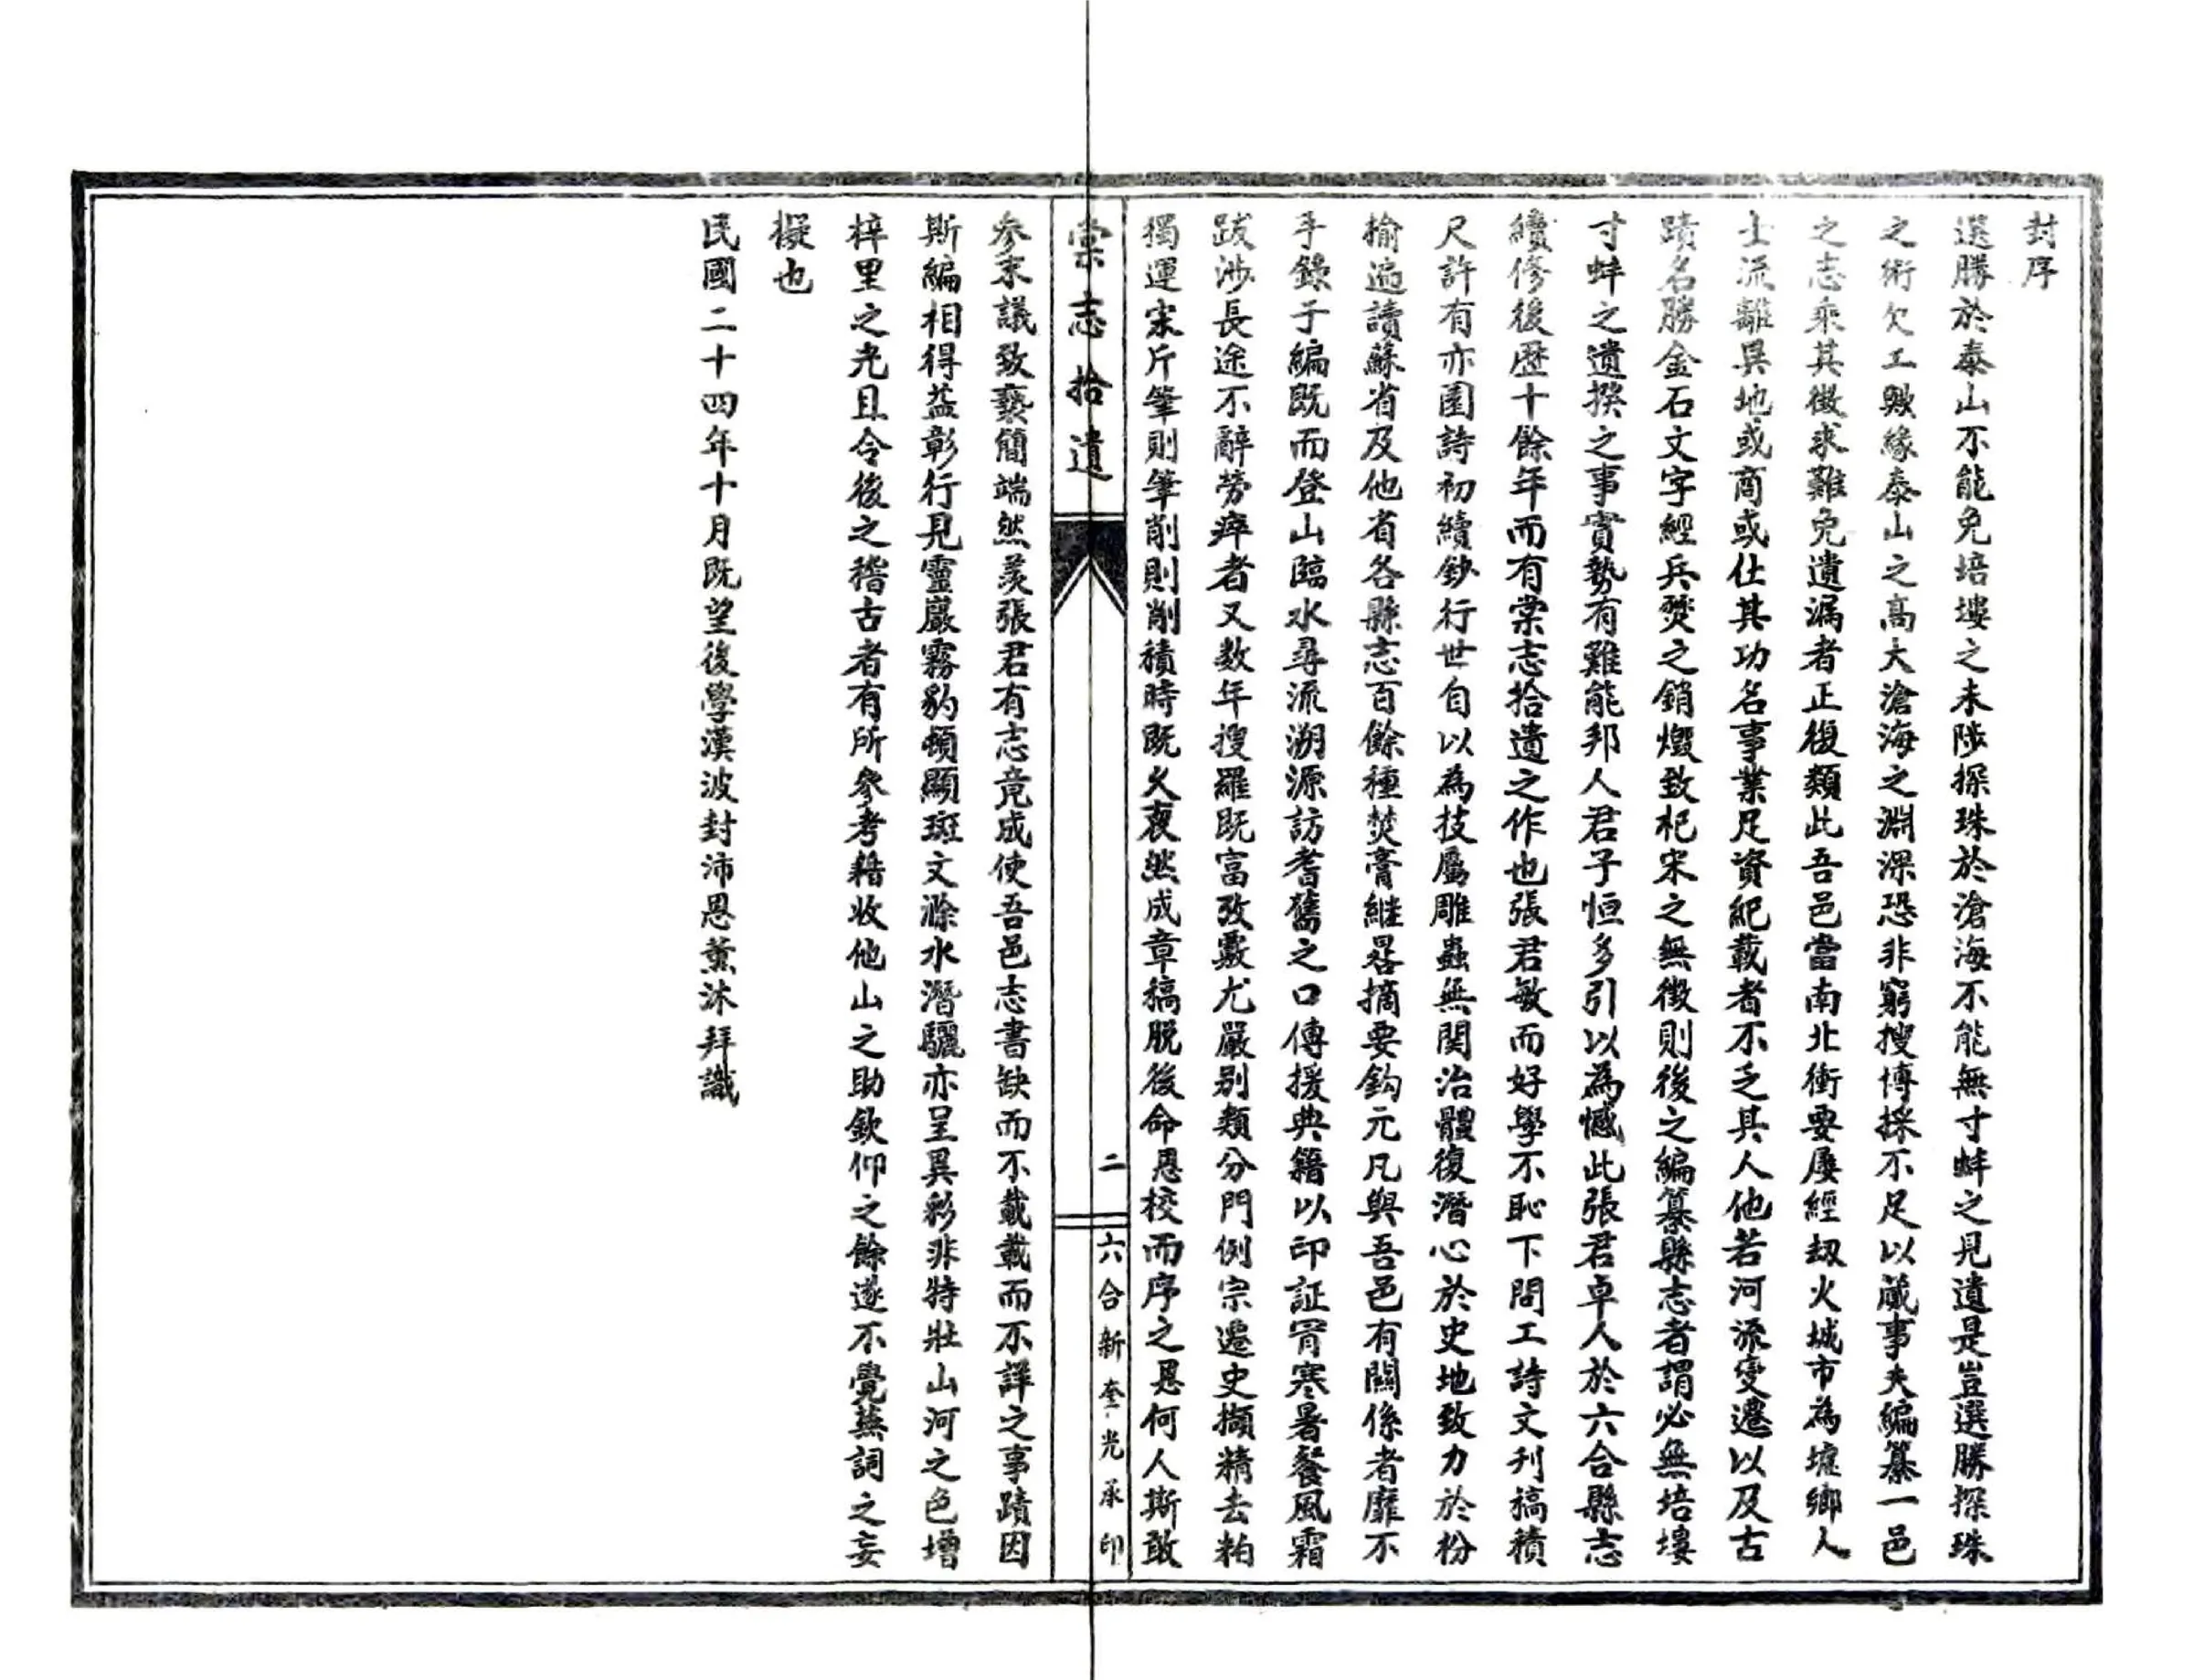 封序
選勝於泰山不能免培塿之未陟探珠於滄海不能無寸蚌之見遺是豈選勝探珠
之術欠工歟緣泰山之高大滄海之淵深恐非窮搜博採不足以蕆事夫編纂一邑
之志乘其徵求難免遺漏者正復類此吾邑當南北衝要屢經劫火城市為墟鄉人
士流離異地或商或仕其功名事業足資紀載者不乏其人他若河流變遷以及古
蹟名勝金石文字經兵燹之銷燬致杞宋之無徵則後之編纂縣志者謂必無培塿
寸蚌之遺揆之事實勢有難能邦人君子恒多引以為憾此張君卓人於六合縣志
續修後歷十餘年而有棠志拾遺之作也張君敏而好學不恥下問工詩文刋稿積
尺許有亦園詩初續鈔行世自以為技屬雕蟲無関治體復潛心於史地致力於枌
榆遍讀蘇省及他省各縣志百餘種焚膏継晷摘要鈎元凡與吾邑有關係者靡不
手錄于編既而登山臨水尋流溯源訪耆舊之口傳援典籍以印証冐寒暑餐風霜
跋涉長途不辭勞瘁者又数年搜羅既富攷覈尤嚴别類分門例宗遷史擷精去粕
獨運宋斤筆則筆削則削積時既久裒然成章稿脱後命恩校而序之恩何人斯敢
棠志拾遺
二
六合新奎光承印
参末議致褻簡端然羡張君有志竟成使吾邑志書缺而不載載而不詳之事蹟因
斯編相得益彰行見靈巖霧豹頓顯斑文滁水潛驪亦呈異彩非特壯山河之色增
梓里之光且令後之稽古者有所参考藉收他山之助欽仰之餘遂不覺蕪詞之妄
擬也
民國二十四年十月既望後學漢波封沛恩薰沐拜識